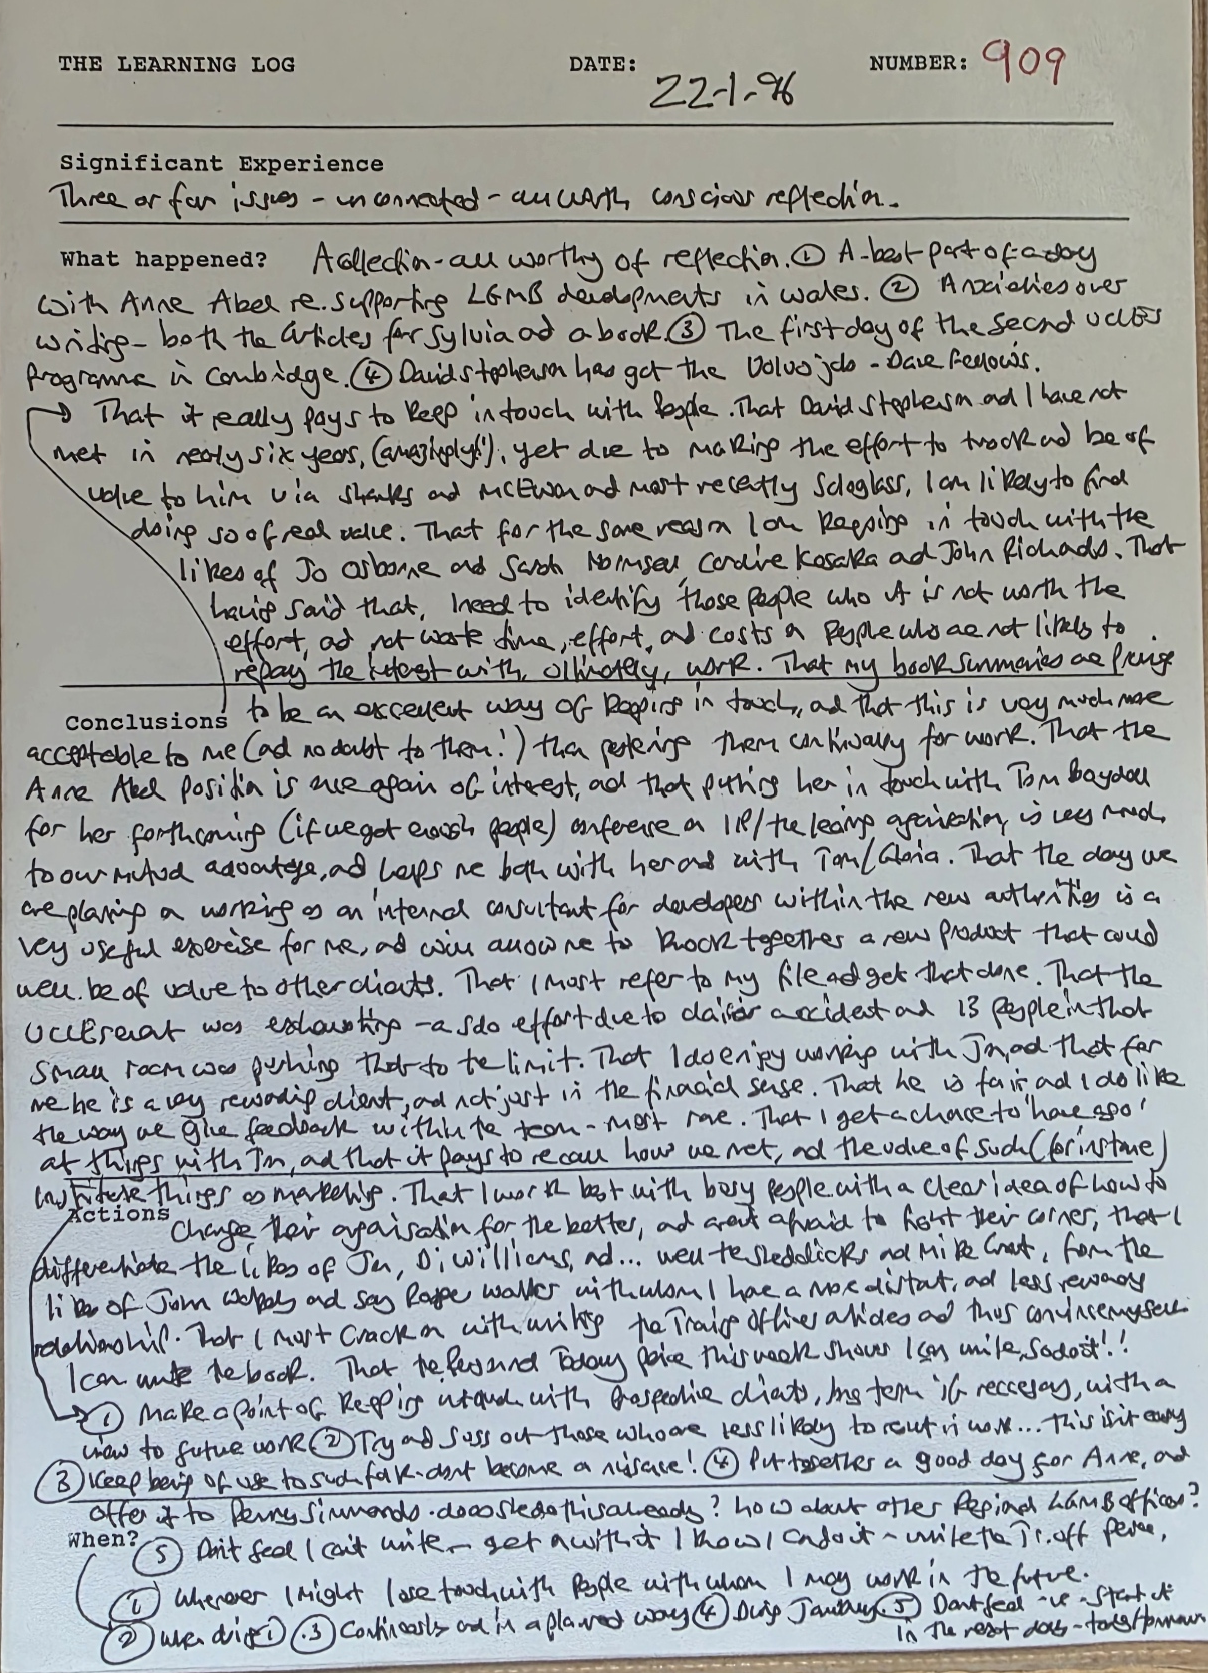 THE LEARNING LOG DATE: 22-1-96 NUMBER: 909
Significant Experience
Three or four issues - unconnected - all worth conscious reflection.
What happened? A collection - all worthy of reflection. ① A best part of a day
with Anne Abel re. supporting LGMB developments in Wales. ② Anxieties over
writing - both the articles for Sylvia and a book. ③ The first day of the second UCLES
Programme in Cambridge. ④ David Stephenson has got the Volvo job - Dave Fellows.
→ That it really pays to keep in touch with people. That David Stephenson and I have not
met in nearly six years, (amazingly!), yet due to making the effort to track and be of
value to him via Shanks and McEwan and most recently Solaglass, I am likely to find
doing so of real value. That for the same reason I am keeping in touch with the
likes of Jo Osborne and Sarah Kosaka and John Richards. That
having said that, I need to identify those people who it is not worth the
effort, and not waste time, effort, and costs on people who are not likely to
repay the interest with, ultimately, work. That my book summaries are proving
Conclusions to be an excellent way of keeping in touch, and that this is very much more
acceptable to me (and no doubt to them!) than pestering them continually for work. That the
Anne Abel position is once again of interest, and that putting her in touch with Tom Boydell
for her forthcoming (if we get enough people) conference on IIP/the learning organisation, is very much
to our mutual advantage, and helps me both with her and with Tom/Gloria. That the day we
are planning on working as an internal consultant for developers within the new authorities is a
very useful exercise for me, and will allow me to knock together a new product that could
well be of value to other clients. That I must refer to my file and get that done. That the
UCLES event was exhausting - a solo effort due to accident and 13 people in that
small room was pushing that to the limit. That I do enjoy working with Jan, and that for
me he is a very rewarding client, and not just in the financial sense. That he is fair, and I do like
the way we give feedback within the team - most rare. That I get a chance to 'have a go'
at things with Jan, and that it pays to recall how we met, and the value of such (for instance)
Institute things as marketing. That I work best with busy people with a clear idea of how to
Actions change their organisation for the better, and aren't afraid to fight their corner, that I
differentiate the likes of Jan, Di Williams, and... well the and Mike, from the
likes of John and say Roger with whom I have a more distant, and less rewarding
relationship. That I must crack on with writing the Training Officer articles and thus convince myself
I can write the book. That the Personnel Today piece this week shows I can write, so do it!!
① Make a point of keeping in touch with prospective clients, long term if necessary, with a
view to future work ② Try and suss out those who are less likely to result in work... This isn't easy
③ Keep being of use to such folk - don't become a nuisance! ④ Put together a good day for Anne, and
offer it to Penny Simmonds. does she do this already? How about other Regional LGMB offices?
When? ⑤ Don't feel I can't write - get on with it I know I can do it - write the Tr. Off piece,
① Whenever I might lose touch with people with whom I may work in the future.
② When doing ① ③ Continuously and in a planned way ④ During January. ⑤ Don't feel -ve - start it
in the next days - today/tomorrow